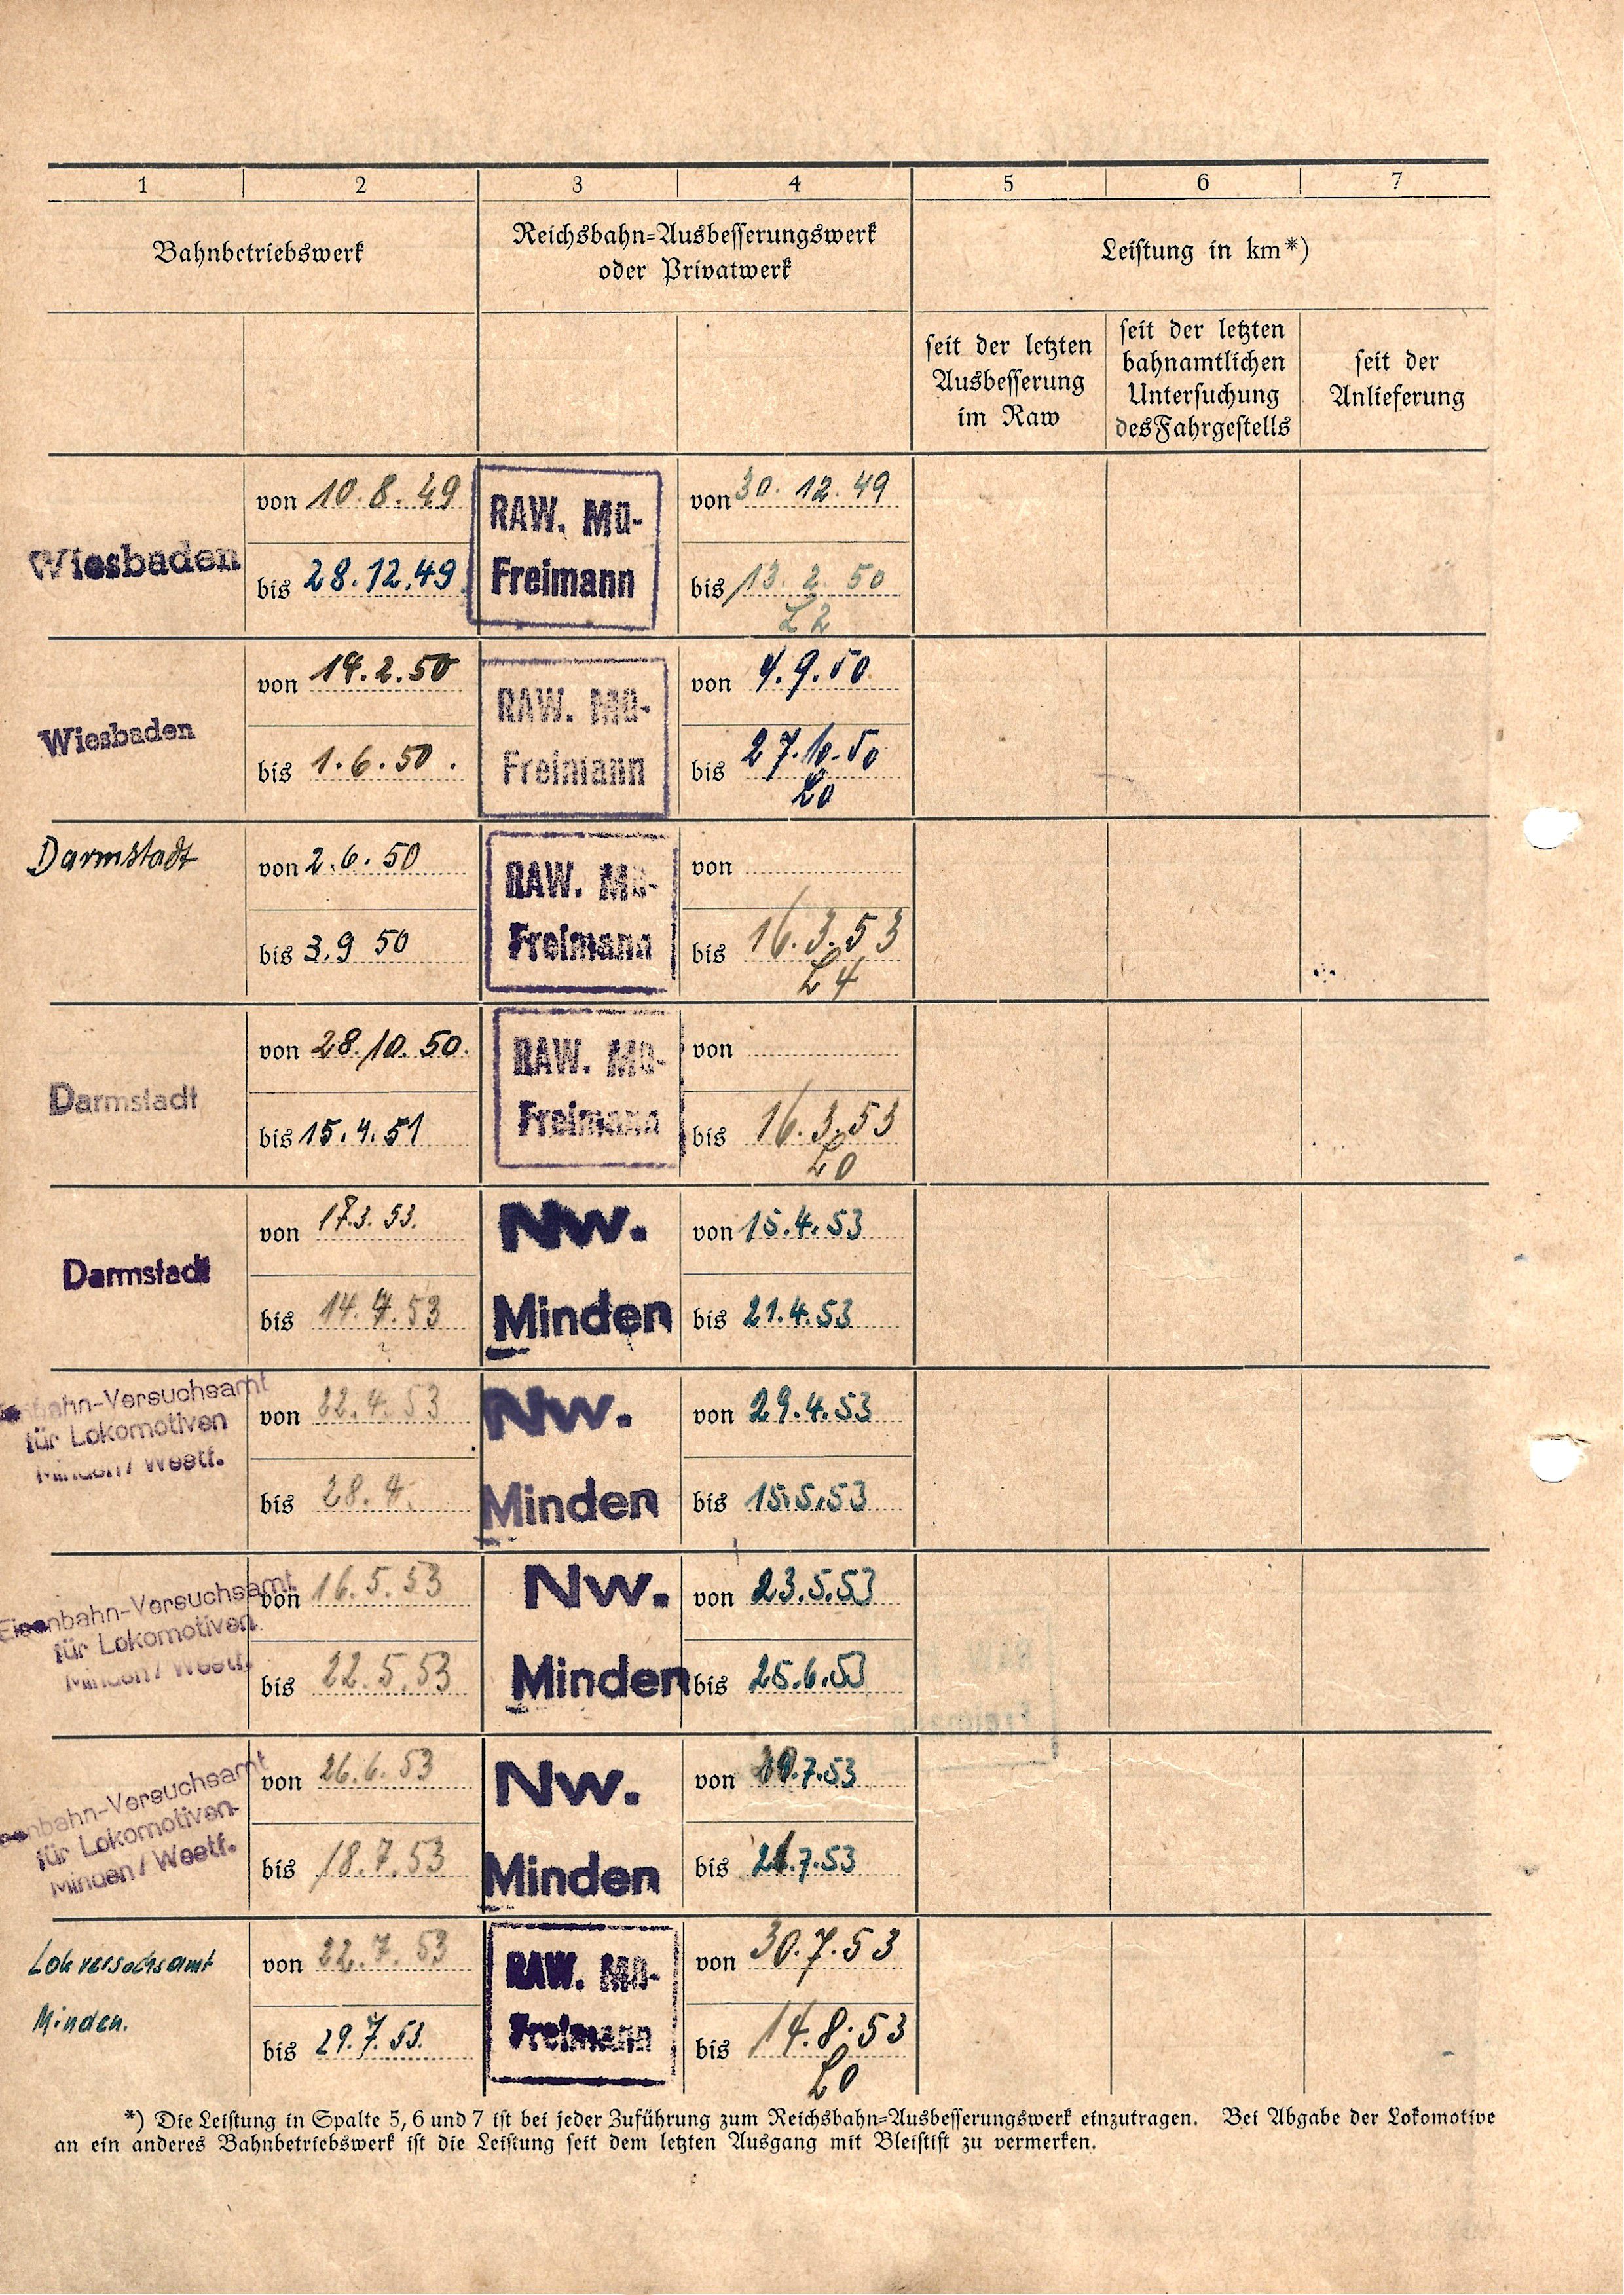 1 2 3 4 5 6 7
Bahnbetriebswerk
Reichsbahn=Ausbesserungswerk
oder Privatwerk
Leistung in km*)
seit der letzten
Ausbesserung
im Raw
seit der letzten
bahnamtlichen
Untersuchung
des Fahrgestells
seit der
Anlieferung
Wiesbaden
von 10.8.49
bis 28.12.49
RAW. Mü-
Freimann
von 30.12.49
bis 13.2.50
L2
Wiesbaden
von 14.2.50
bis 1.6.50.
RAW. Mü-
Freimann
von 4.9.50
bis 27.10.50
L0
Darmstadt
von 2.6.50
bis 3.9 50
RAW. Mü-
Freimann
von
bis 16.3.53
L4
Darmstadt
von 28.10.50.
bis 15.4.51
RAW. Mü-
Freimann
von
bis 16.3.53
L0
Darmstadt
von 17.3.53.
bis 14.4.53
Nw.
Minden
von 15.4.53
bis 21.4.53
Eisenbahn-Versuchsamt
für Lokomotiven
Minden/Westf.
von 22.4.53
bis 28.4.
Nw.
Minden
von 29.4.53
bis 15.5.53
Eisenbahn-Versuchsamt
für Lokomotiven
Minden/Westf.
von 16.5.53
bis 22.5.53
Nw.
Minden
von 23.5.53
bis 25.6.53
Eisenbahn-Versuchsamt
für Lokomotiven
Minden/Westf.
von 26.6.53
bis 18.7.53
Nw.
Minden
von .7.53
bis 21.7.53
Lokversuchsamt
Minden.
von 22.7.53
bis 29.7.53.
RAW. Mü-
Freimann
von 30.7.53
bis 14.8.53
L0
*) Die Leistung in Spalte 5, 6 und 7 ist bei jeder Zuführung zum Reichsbahn=Ausbesserungswerk einzutragen. Bei Abgabe der Lokomotive
an ein anderes Bahnbetriebswerk ist die Leistung seit dem letzten Ausgang mit Bleistift zu vermerken.